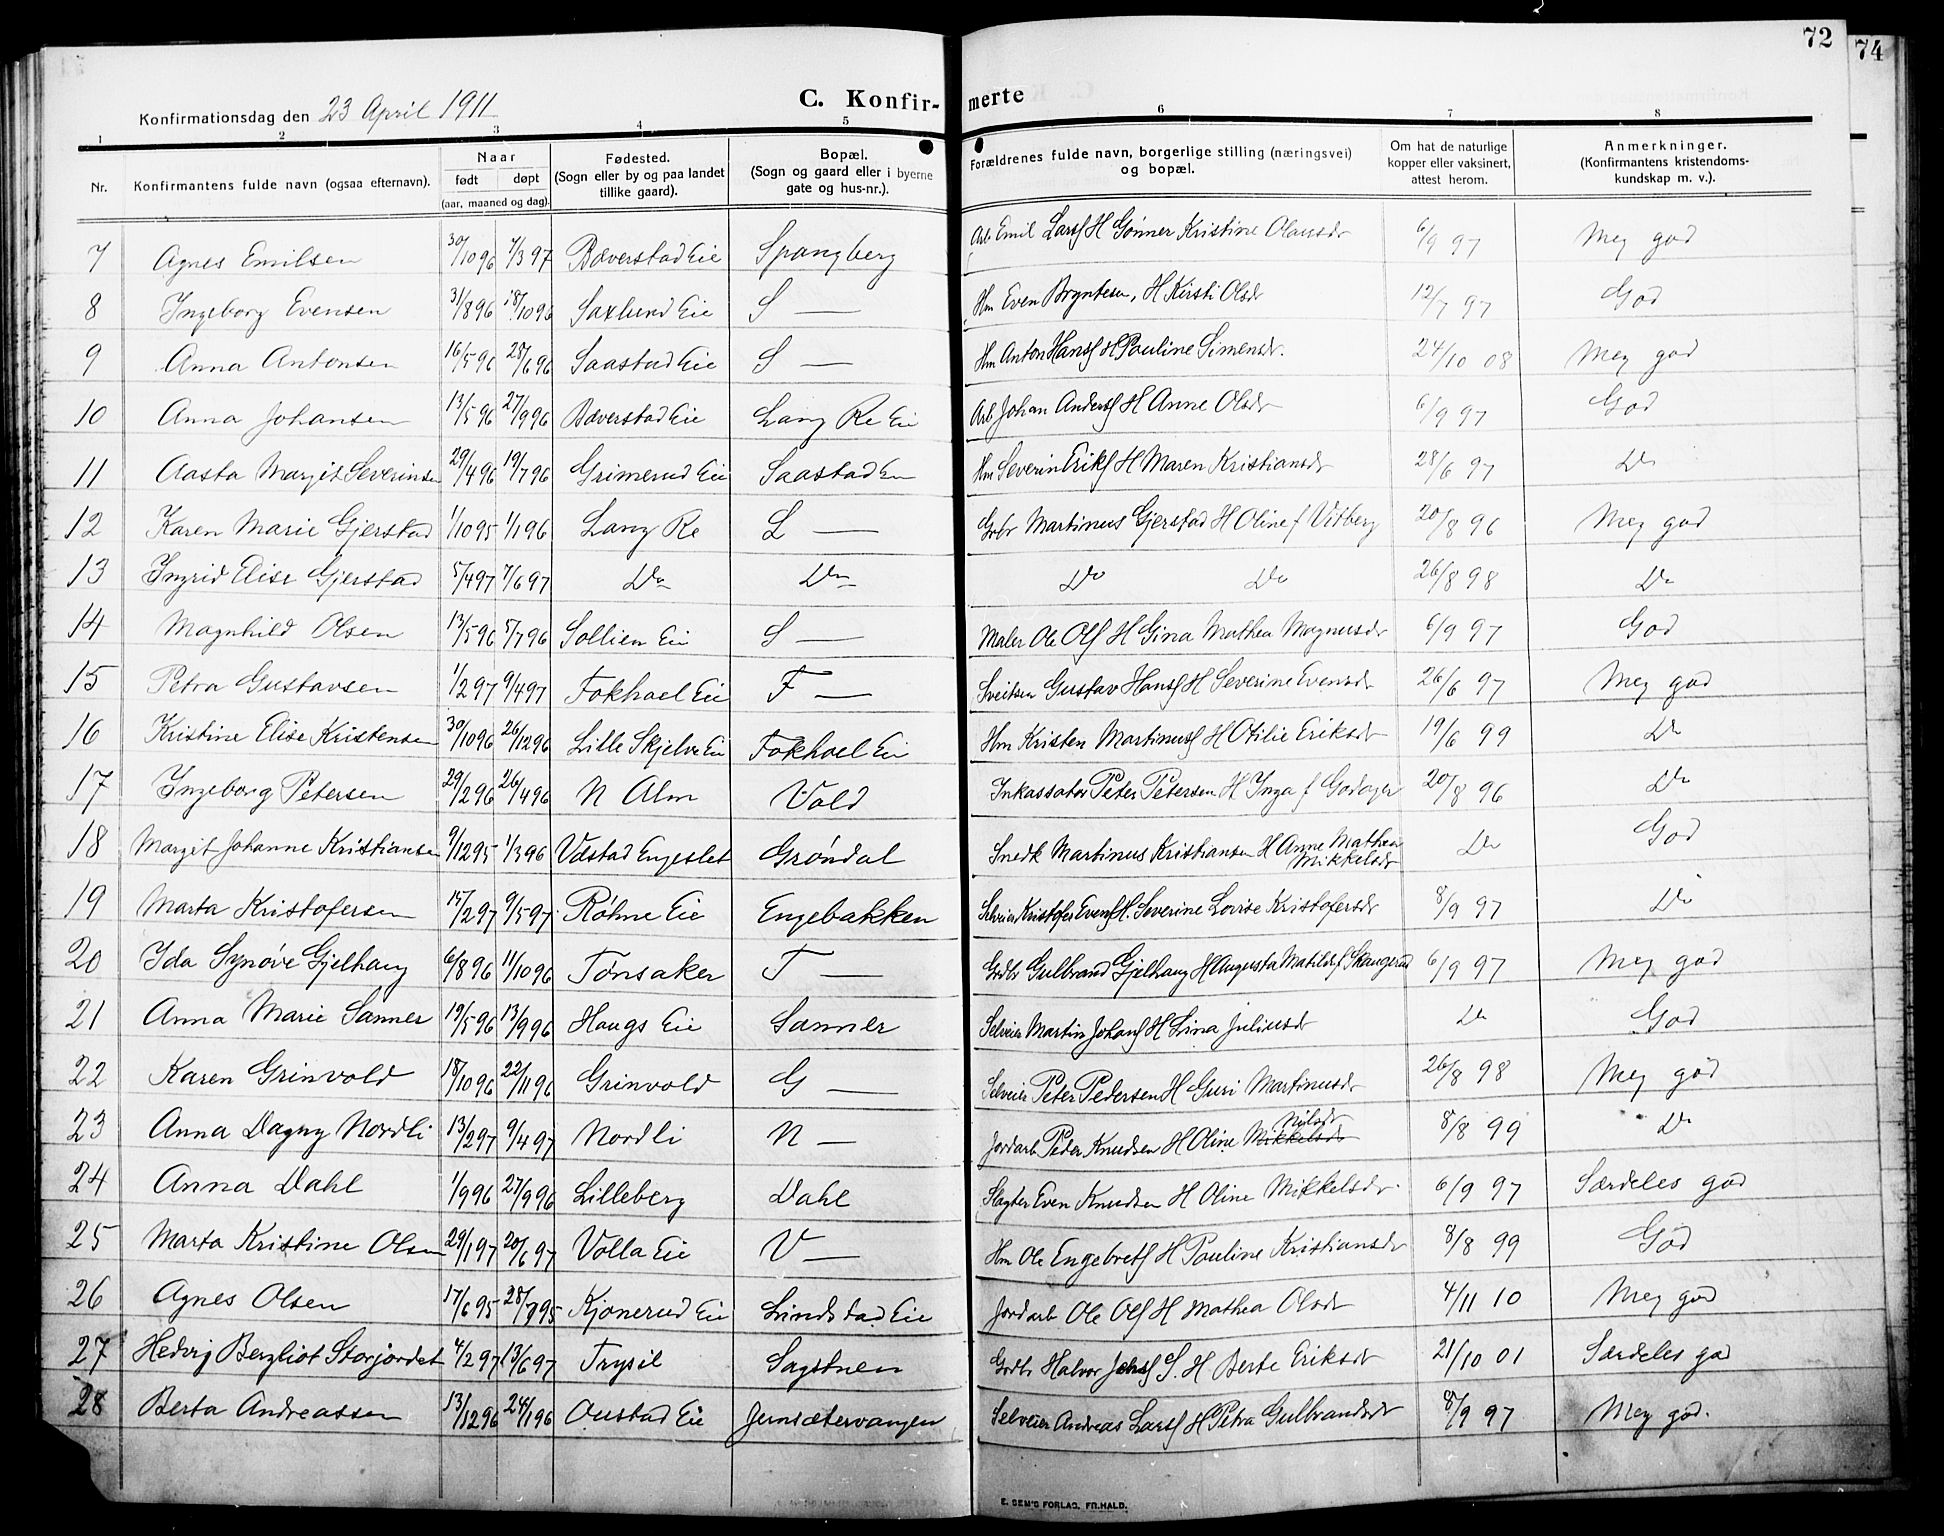 72
74
C. Konfir- merte
Konfirmationsdag den 23 April 1911
1 2 3 4 5 6 7 8
Nr. Konfirmantens fulde navn (ogsaa efternavn). Naar født døpt (aar, maaned og dag). Fødested. (Sogn eller by og paa landet tillike gaard). Bopæl. (Sogn og gaard eller i byerne gate og hus-nr.). Forældrenes fulde navn, borgerlige stilling (næringsvei) og bopæl. Om hat de naturlige kopper eller vaksinert, attest herom. Anmerkninger. (Konfirmantens kristendoms-kundskap m. v.).
7 Agnes Emilsen 30/10 96 7/3 97 Bæverstad Eie Spangberg Arb Emil Larss H Gønner Kristine Olausdr 6/9 97 Meg god
8 Ingeborg Evensen 31/8 96 18/10 96 Saxlund Eie S — Hm Even Bryntesen, H Kirsti Olsdr 12/7 97 God
9 Anna Antonsen 16/5 96 28/6 96 Saastad Eie S — Hm Anton Hanss H Pauline Simensdr. 24/10 08 Meg god
10 Anna Johansen 13/5 96 27/9 96 Bæverstad Eie Lang Re Eie Arb Johan Anderss H Anne Olsdr 6/9 97 God
11 Aasta Margit Severinsen 29/4 96 19/7 96 Grimerud Eie Saastad Eie Hm Severin Eriks H Maren Kristiansdr 28/6 97 Do
12 Karen Marie Gjerstad 1/10 95 1/1 96 Lang Re L — Grbr Martinus Gjerstad H Oline f Vitberg 20/8 96 Meg god
13 Ingrid Elise Gjerstad 5/4 97 7/6 97 Do Do Do Do 26/8 98 Do
14 Magnhild Olsen 13/5 96 5/7 96 Sollien Eie S — Maler Ole Ols H Gina Mathea Magnusdr 6/9 97 God
15 Petra Gustavsen 1/2 97 9/4 97 Fokhoel Eie F — Sveitser Gustav Hanss H Severine Evensdr 26/6 97 Meg god
16 Kristine Elise Kristensen 30/10 96 26/12 96 Lille Skjelve Eie Fokhoel Eie Hm Kristen Martinuss H Otilie Eriksdr 19/6 99 Do
17 Ingeborg Petersen 29/2 96 26/4 96 N Alm Vold Inkassator Peter Petersen H Inga f Godager 20/8 96 Do
18 Margit Johanne Kristiansen 9/12 95 1/3 96 Vdstad Engeslet Grøndal Snedk Martinus Kristiansen H Anne Mathea Mikkelsdr Do God
19 Marta Kristofersen 15/2 97 9/5 97 Røhne Eie Engebakken Selveier Kristofer Evens H. Severine Lovise Kristofersdr 8/9 97 Do
20 Ida Synøve Gjelhaug 6/8 96 11/10 96 Tønsaker T — Grdbr Gulbrand Gjelhaug H Augusta Matilde f Skaugerud 6/9 97 Meg god
21 Anna Marie Sanner 19/5 96 13/9 96 Haugs Eie Sanner Selveier Martin Johans H Lina Juliusdr Do God
22 Karen Grinvold 18/10 96 22/11 96 Grinvold G — Selveier Peter Pedersen H Guri Martinusdr 26/8 98 Meg god
23 Anna Dagny Nordli 13/2 97 9/4 97 Nordli N — Jordarb Peder Knudsen H Oline Mikkelsdr Nilsdr 8/8 99 Do
24 Anna Dahl 1/9 96 27/9 96 Lilleberg Dahl Slagter Even Knudsen H Oline Mikkelsdr. 6/9 97 Særdeles god
25 Marta Kristine Olsen 29/1 97 20/6 97 Volla Eie V — Hm Ole Engebrets H Pauline Kristiansdr 8/8 99 God
26 Agnes Olsen 17/6 95 28/7 95 Kjonerud Eie Lindstad Eie Jordarb Ole Ols H Mathea Olsdr 4/11 10 Meg god
27 Hedvig Bergliot Storjordet 4/2 97 13/6 97 Trysil Sagstuen Grdbr Halvor Jens S. H Berte Eriksdr 21/10 01 Særdeles god
28 Berta Andreassen 13/12 96 24/1 96 Oustad Eie Jernsætervangen Selveier Andreas Larss H Petra Gulbrandsdr 8/9 97 Meg god.
E. SEM'S FORLAG, FR.HALD.